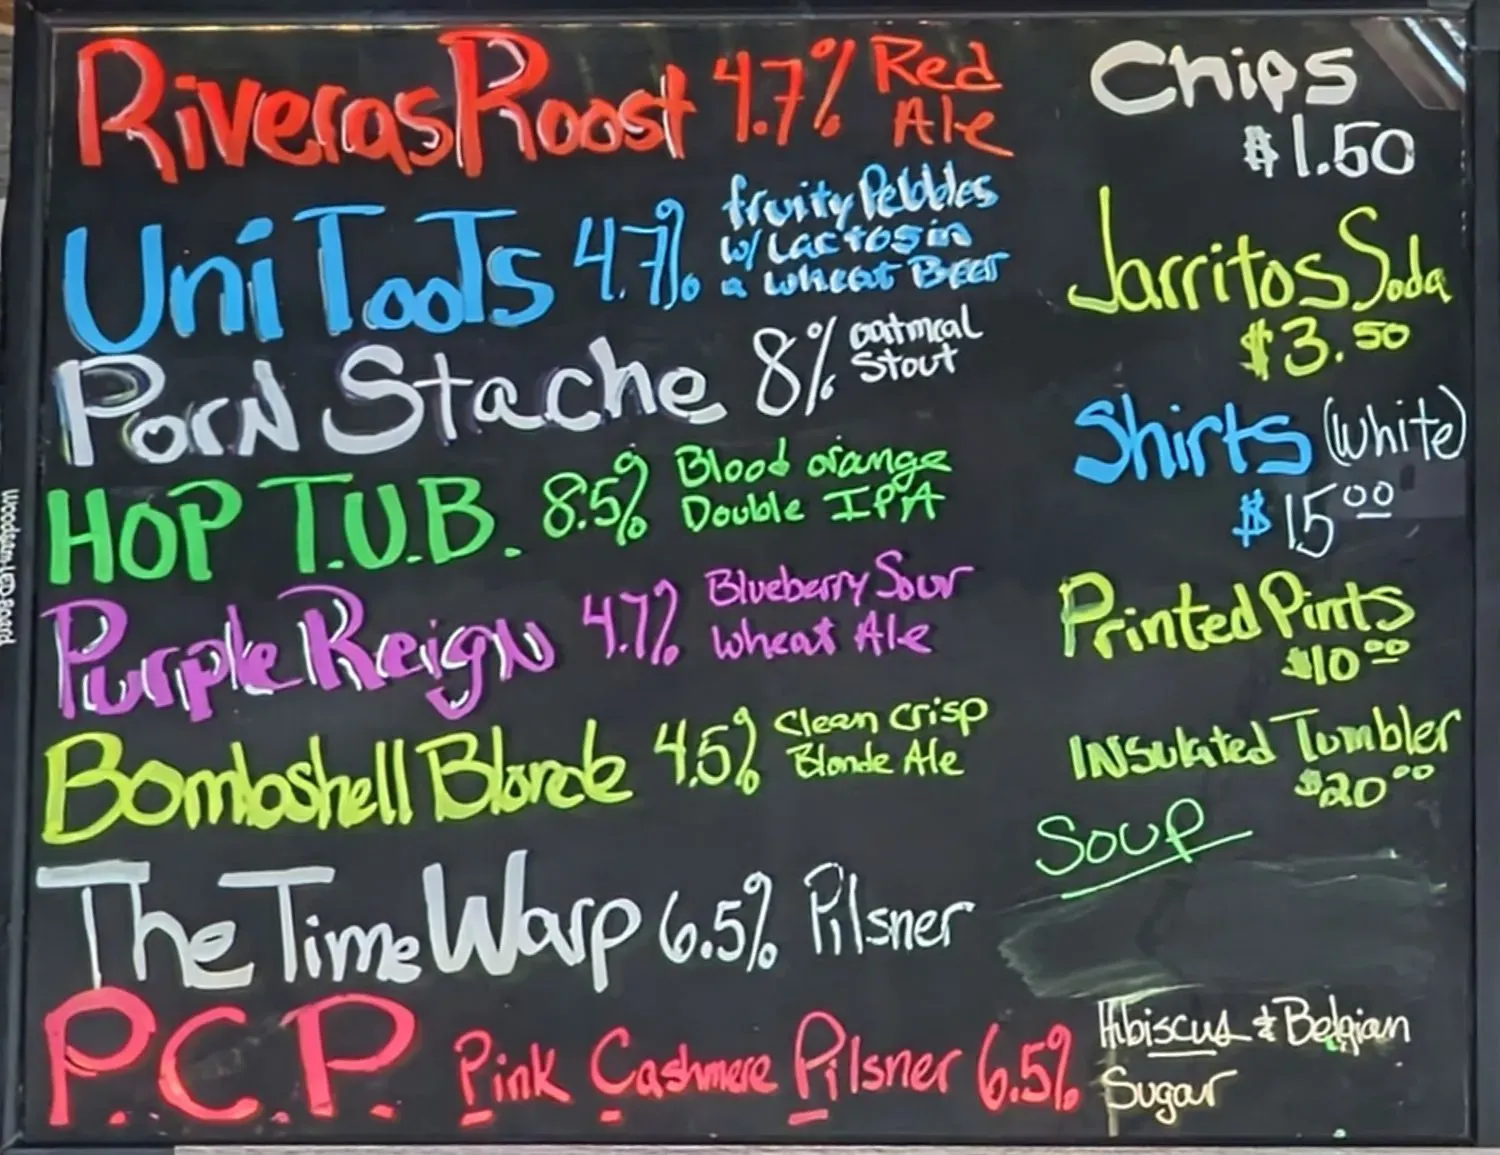 Riveras Roost 4.7% Red Ale
Uni TooTs 4.7% fruity Pebbles w/ Lactos in a wheat BEER
Porn Stache 8% oatmeal Stout
HOP T.U.B. 8.5% Blood orange Double IPA
Purple Reign 4.7% Blueberry Sour wheat Ale
Bombshell Blonde 4.5% Clean crisp Blonde Ale
The Time Warp 6.5% Pilsner
P.C.P. Pink Cashmere Pilsner 6.5% Hibiscus & Belgian Sugar
Chips
$1.50
Jarritos Soda
$3.50
Shirts (white)
$15.00
Printed Pints
$10.00
INSulated Tumbler
$20.00
Soup
Woodsam-LED-Board